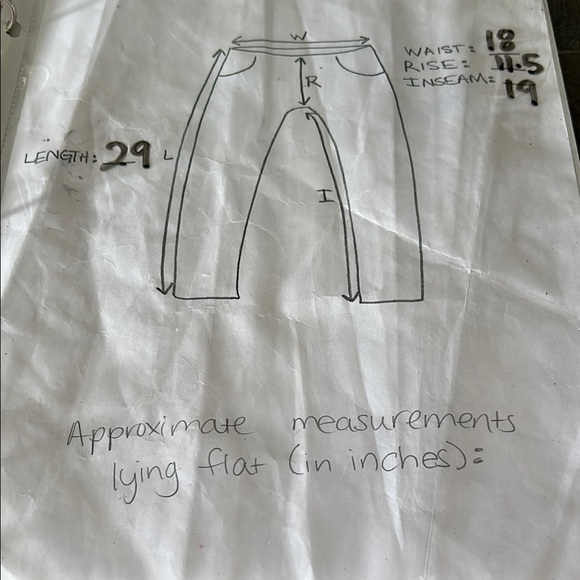 W
WAIST: 18
RISE: 11.5
INSEAM: 19
R
LENGTH: 29 L
I
Approximate measurements
lying flat (in inches):